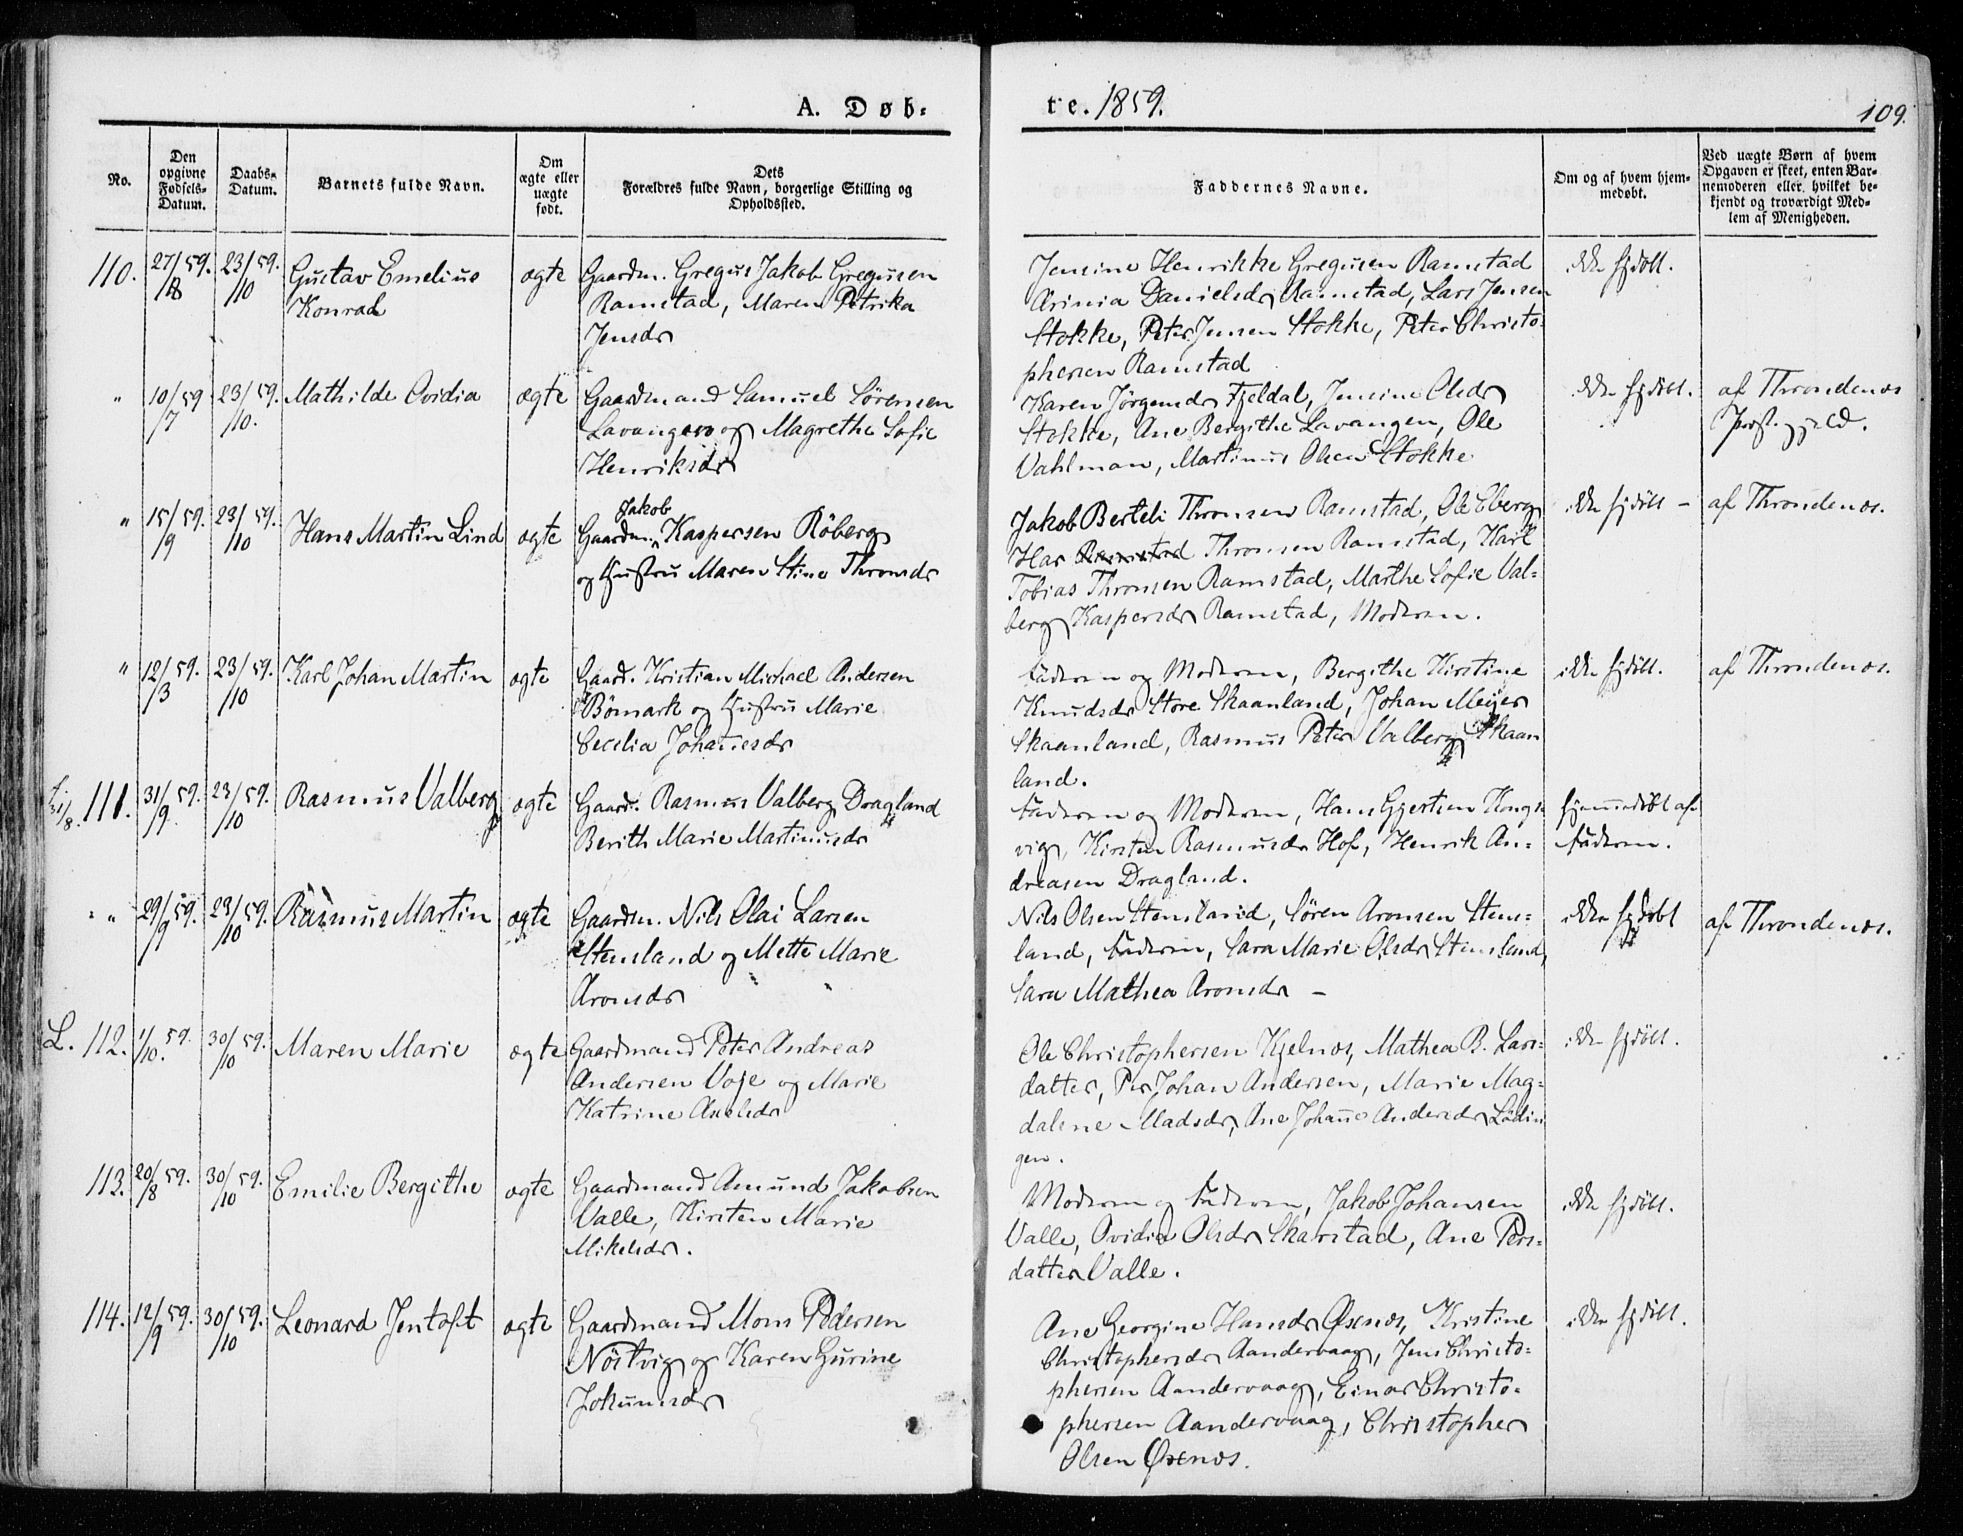 A. Døb-
te. 1859.
109.
No.
Den
opgivne
Fødsels-
Datum.
Daabs-
Datum.
Barnets fulde Navn.
Om
ægte eller
uægte
født.
Dets
Forældres fulde Navn, borgerlige Stilling og
Opholdssted.
Faddernes Navne.
Om og af hvem hjem-
medøbt.
Ved uægte Børn af hvem
Opgaven er skeet, enten Bar-
nemoderen eller hvilket be-
kjendt og troværdigt Med-
lem af Menigheden.
110.
27/8 59.
23/10 59.
Gustav Emelius
Konrad
ægte
Gaardm. Gregus Jakob Gregusen
Ramstad, Maren Petrika
Jensdr
Jensine Henrikke Gregusen Ramstad
Arinia Danielsdr Ramstad, Lars Jensen
Stokke, Peter Jensen Stokke, Peter Christo-
phersen Ramstad
ikke hjdöbt.
"
10/7 59
23/10 59.
Mathilde Ovidia
ægte
Gaardmand Samuel Sörensen
Lavangen og Magrethe Sofie
Henriksdr
Karen Jörgensdr Fjeldal, Jensine Olsdr
Stokke, Ane Bergithe Lavangen, Ole
Vahlman, Martinus Olsen Stokke
ikke hjdöbt.
af Throndenæs
Præstegjeld.
"
15/9 59.
23/10 59.
Hans Martin Lind
ægte
Jakob
Gaardm. Kaspersen Röberg
og Hustru Maren Stine Thronsdr
Jakob Berteli Thronsen Ramstad, Ole Eberg
Har Ramstad Thronsen Ramstad, Karl
Tobias Thronsen Ramstad, Marthe Sofie Val-
berg Kaspersdr Ramstad, Moderen.
ikke hjdöbt -
af Throndenæs.
"
12/3 59.
23/10 59.
Karl Johan Martin
ægte
Gaard. Kristian Michael Andersen
Bömark og Hustru Marie
Cecilia Johanesdr
Faderen og Moderen, Bergithe Kirstine
Knudsdr Store Skaanland, Johan Meyer
Skaanland, Rasmus Peter Valberg Skaan
land.
ikke hjdöbt.
af Throndenæs.
111.
31/9 59.
23/10 59.
Rasmus Valberg
ægte
Gaard. Rasmus Valberg Dragland
Berith Marie Martinusdr
Faderen og Moderen, Hans Ggertsen Kongs
vig, Kirsten Rasmusdr Hof, Henrik An-
dreasen Dragland.
hjemmedöbt af
Faderen.
"
29/9 59.
23/10 59.
Rasmus Martin
ægte
Gaardm. Nils Olai Larsen
Stensland og Mette Marie
Aronsdr
Nils Olsen Stensland, Sören Aronsen Stens-
land, Faderen, Sara Marie Olsdr Stensland,
Sara Mathea Aronsdr -
ikke hjdöbt
af Throndenæs.
L. 112.
1/10. 59.
30/10 59.
Maren Marie
ægte
Gaardmand Peter Andreas
Andersen Voje og Marie
Katrine Axelsdr
Ole Christophersen Kjelnæs, Mathea B. Lars-
datter, Per Johan Andersen, Marie Mag-
dalene Madsdr, Ane Johane Andersdr Lödin
gen.
ikke hjdöbt.
113.
20/8 59.
30/10 59.
Emilie Bergithe
ægte
Gaardmand Amund Jakobsen
Valle, Kirsten Marie
Mikelsdr.
Moderen og Faderen, Jakob Johansen
Valle, Ovidia Olsdr Skarstad, Ane Pers-
datter Valle.
ikke hjdöbt.
114.
12/9 59.
30/10 59.
Leonard Jentoft
ægte
Gaardmand Mons Pedersen
Nöstvig og Karen Gurine
Jokumsdr
Ane Georgine Hansdr Øxnæs, Kristine
Christophersdr Aandervaag, Jens Christo-
phersen Aandervaag, Einar Christo-
phersen Aandervaag, Christopher
Olsen Øxnæs.
ikke hjdöbt.